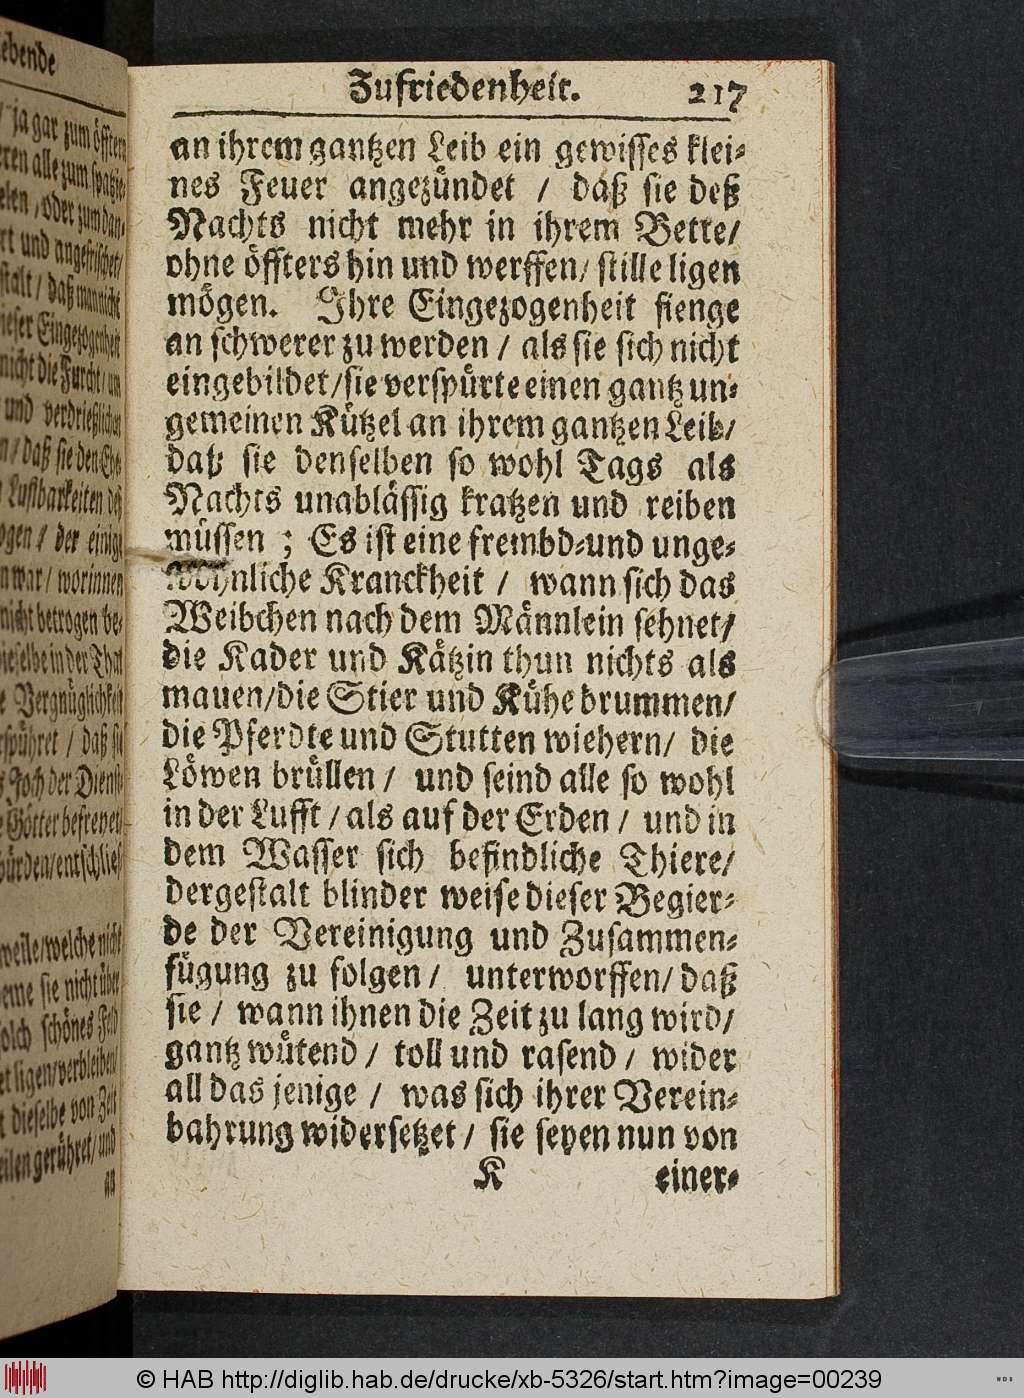 Zufriedenheit. 217
an ihrem gantzen Leib ein gewisses klei-
nes Feuer angezündet / daß sie deß
Nachts nicht mehr in ihrem Bette/
ohne öffters hin und werffen/ stille ligen
mögen. Ihre Eingezogenheit fienge
an schwerer zu werden / als sie sich nicht
eingebildet/sie verspürte einen gantz un-
gemeinen Kützel an ihrem gantzen Leib/
daß sie denselben so wohl Tags als
Nachts unablässig kratzen und reiben
müssen ; Es ist eine frembd-und unge-
wöhnliche Kranckheit / wann sich das
Weibchen nach dem Männlein sehnet/
die Kader und Kätzin thun nichts als
mauen/die Stier und Kühe brummen/
die Pferdte und Stutten wiehern/ die
Löwen brüllen / und seind alle so wohl
in der Lufft / als auf der Erden / und in
dem Wasser sich befindliche Thiere/
dergestalt blinder weise dieser Begier-
de der Vereinigung und Zusammen-
fügung zu folgen / unterworffen/ daß
sie / wann ihnen die Zeit zu lang wird/
gantz wütend / toll und rasend / wider
all das jenige / was sich ihrer Verein-
bahrung widersetzet / sie seyen nun von
K einer-
© HAB http://diglib.hab.de/drucke/xb-5326/start.htm?image=00239